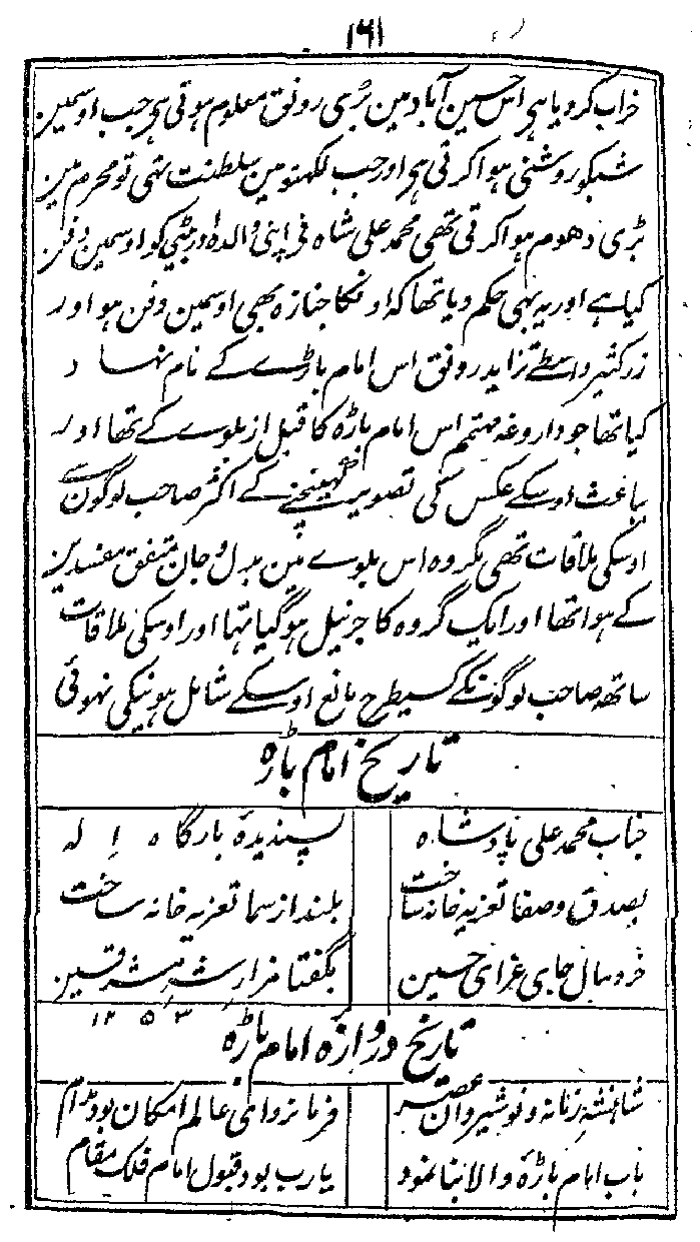 ۱۶۱
خراب کر دیا ہی اس حسین آباد مین بڑی رونق معلوم ہوتی ہی جب اوسمین
شبکو روشنی ہوا کرتی ہی اور جب لکھنو مین سلطنت تہی تو محرم مین
بڑی دھوم ہوا کرتی تھی محمد علی شاہ نی اپنی والدہ اور بیٹی کو اوسمین دفن
کیا ہے اور یہ بہی حکم دیا تھا کہ اونکا جنازہ بھی اوسمین دفن ہو اور
زر کثیر واسطے تزاید رونق اس امام باڑے کے نام نہاد
کیا تھا جو داروغہ مہتمم اس امام باڑہ کا قبل از بلوے کے تھا اور
بباعث اوسکے عکس کی تصویر کھینچنے کے اکثر صاحب لوگون سے
اوسکی ملاقات تھی مگر وہ اس بلوے مین بدل و جان متفق مفسدین
کے ہوا تھا اور ایک گروہ کا جرنیل ہو گیا تہا اور اوسکی ملاقات
ساتھ صاحب لوگونکے کسیطرح مانع اوسکے شامل ہونیکی نہوئی
تاریخ امام باڑہ
جناب محمد علی پادشاہ پسندیدۂ بارگاہ الہ
بصدق و صفا تعزیہ خانہ ساخت بلند از سما تعزیہ خانہ ساخت
خرد سال جای عزای حسین بگفتا مزار شہ مشرقین
۱۲۵۳
تاریخ دروازہ امام باڑہ
شاہنشہ زمانہ و نوشیروان عصر فرمانروای عالم امکان بود مدام
باب امام باڑۂ والا بنا نمود یارب بود قبول امام فلک مقام